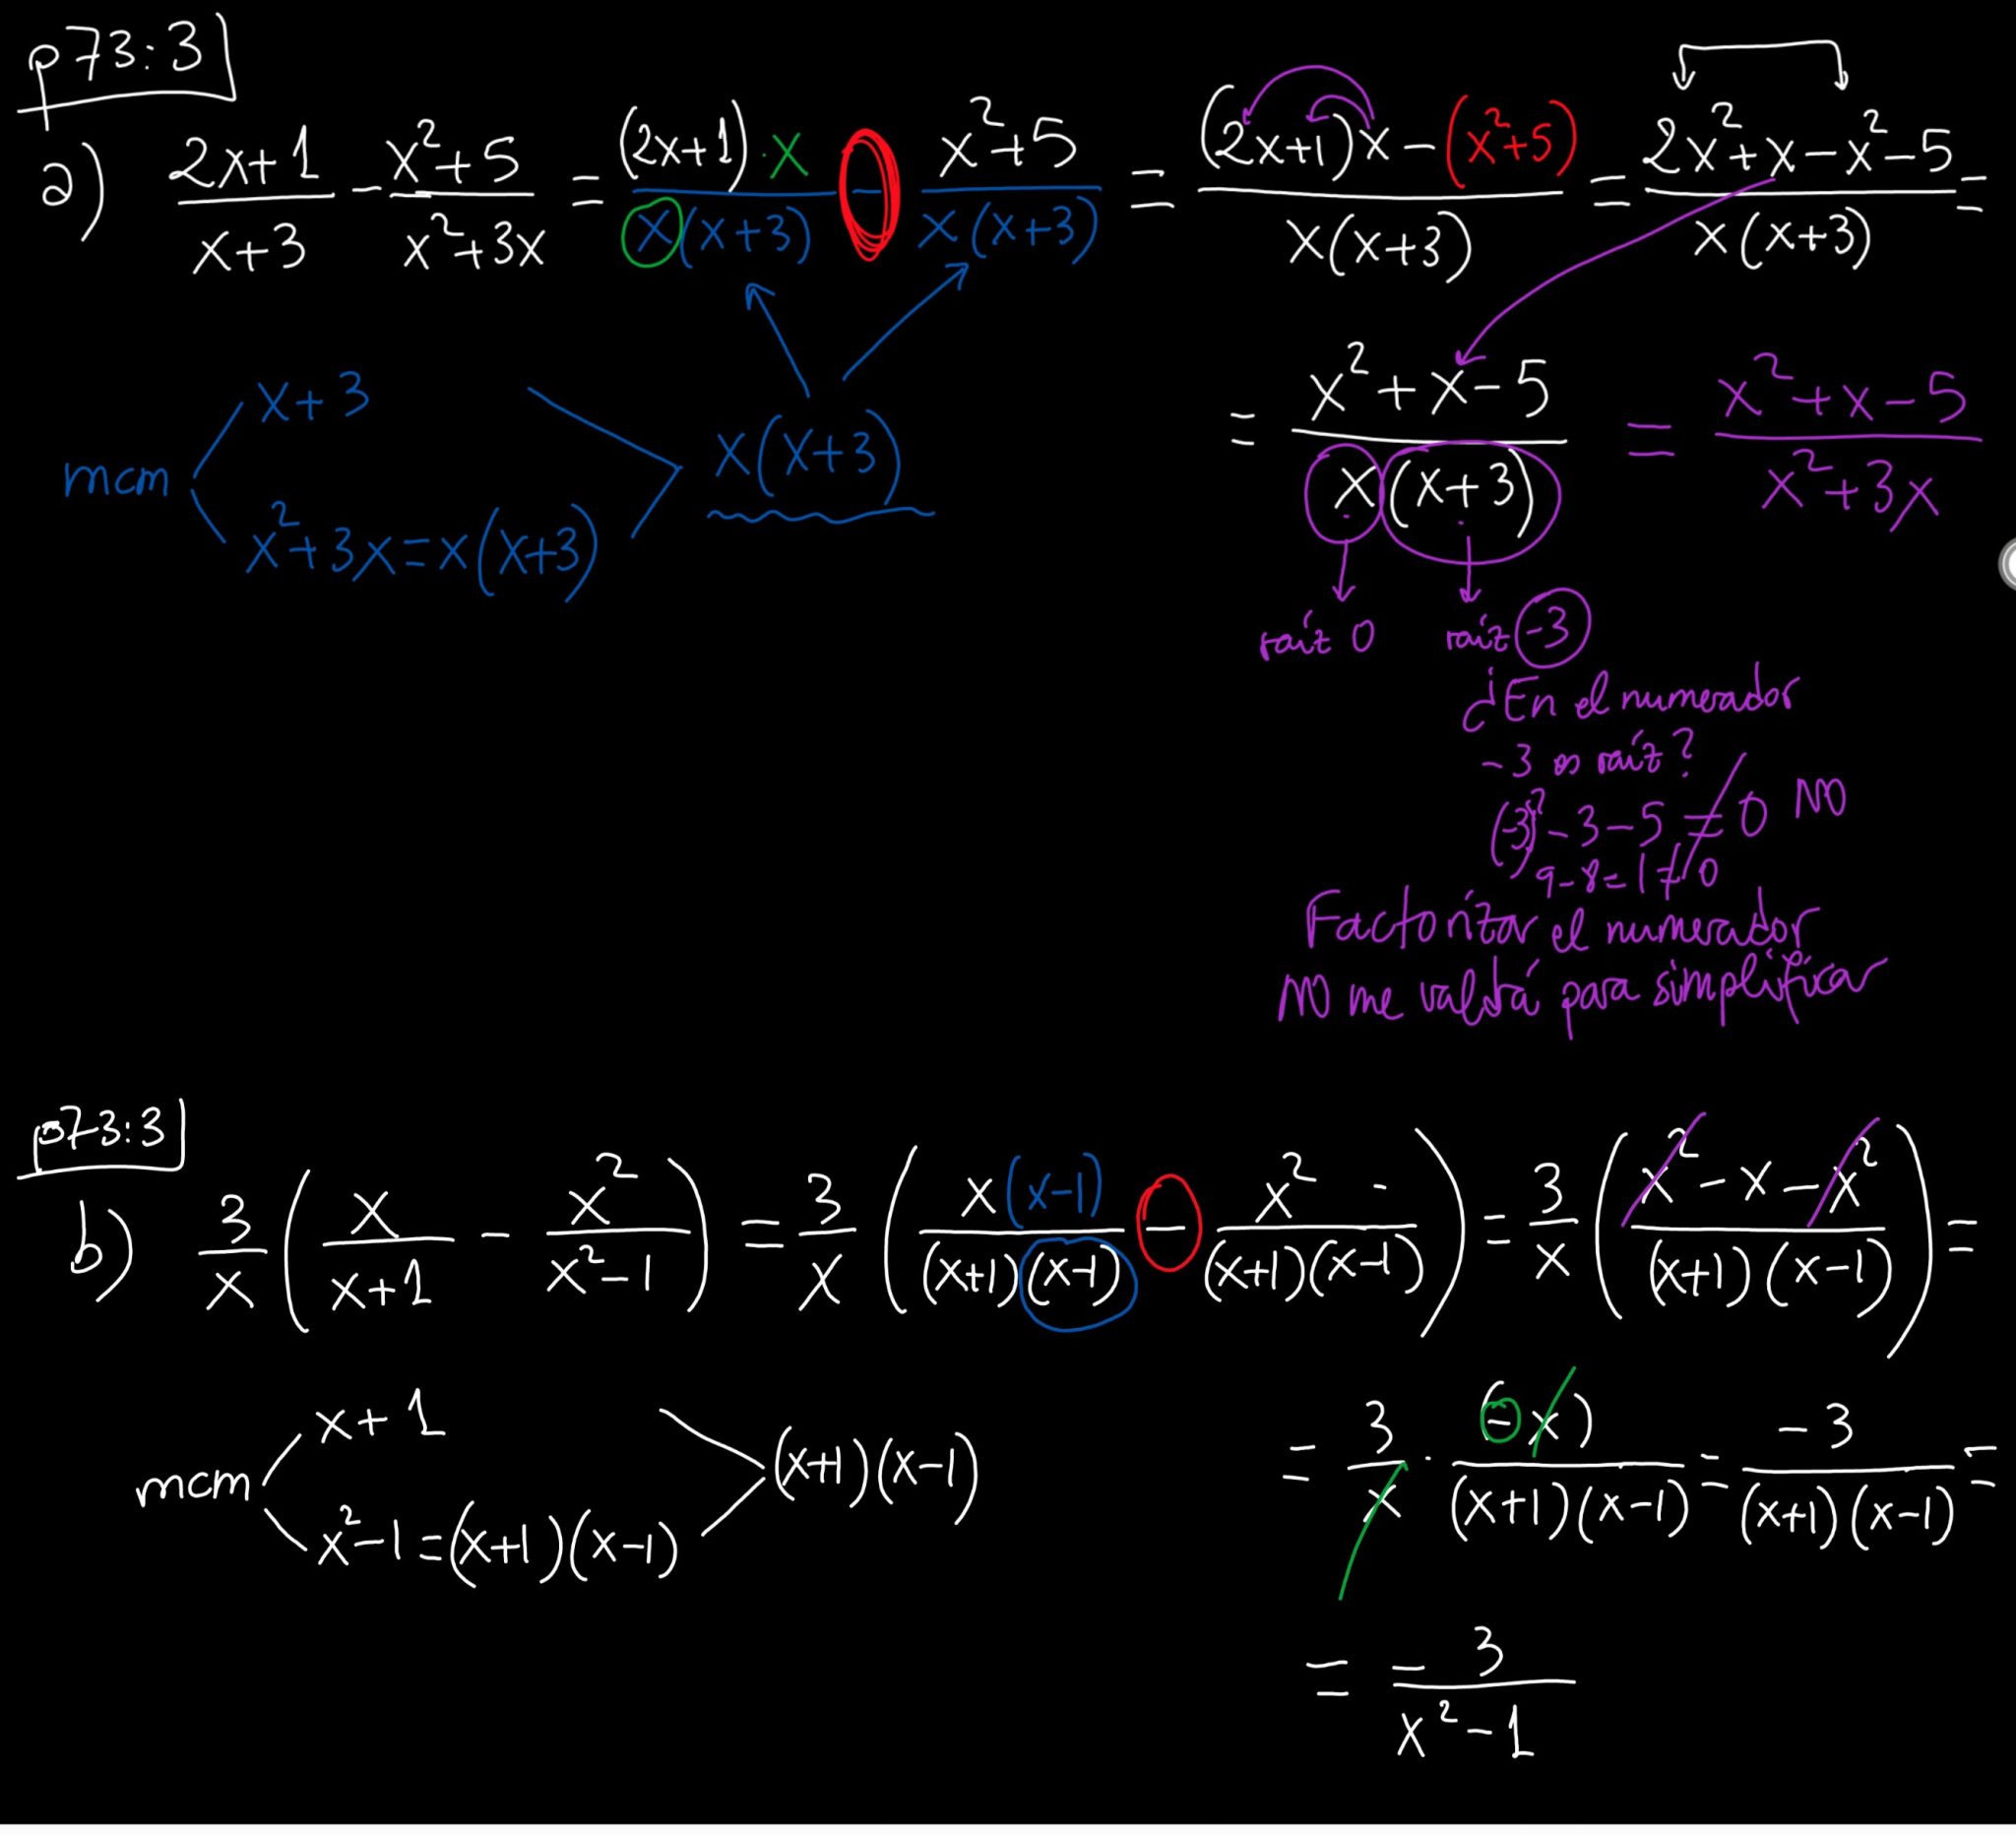 p73:3
a) (2x+1)/(x+3) - (x²+5)/(x²+3x) = ((2x+1)·x)/(x(x+3)) - (x²+5)/(x(x+3)) = ((2x+1)x-(x²+5))/(x(x+3)) = (2x²+x-x²-5)/(x(x+3)) =
mcm
x+3
x²+3x=x(x+3)
x(x+3)
= (x²+x-5)/(x(x+3)) = (x²+x-5)/(x²+3x)
raíz 0 raíz -3
¿En el numerador
-3 es raíz?
(-3)²-3-5 ≠ 0 NO
9-8=1≠0
Factorizar el numerador
NO me valdrá para simplificar
p73:3
b) 3/x (x/(x+1) - x²/(x²-1)) = 3/x ((x(x-1))/((x+1)(x-1)) - x²/((x+1)(x-1))) = 3/x ((x²-x-x²)/((x+1)(x-1))) =
mcm
x+1
x²-1=(x+1)(x-1)
(x+1)(x-1)
= 3/x · (-x)/((x+1)(x-1)) = -3/((x+1)(x-1)) =
= -3/(x²-1)